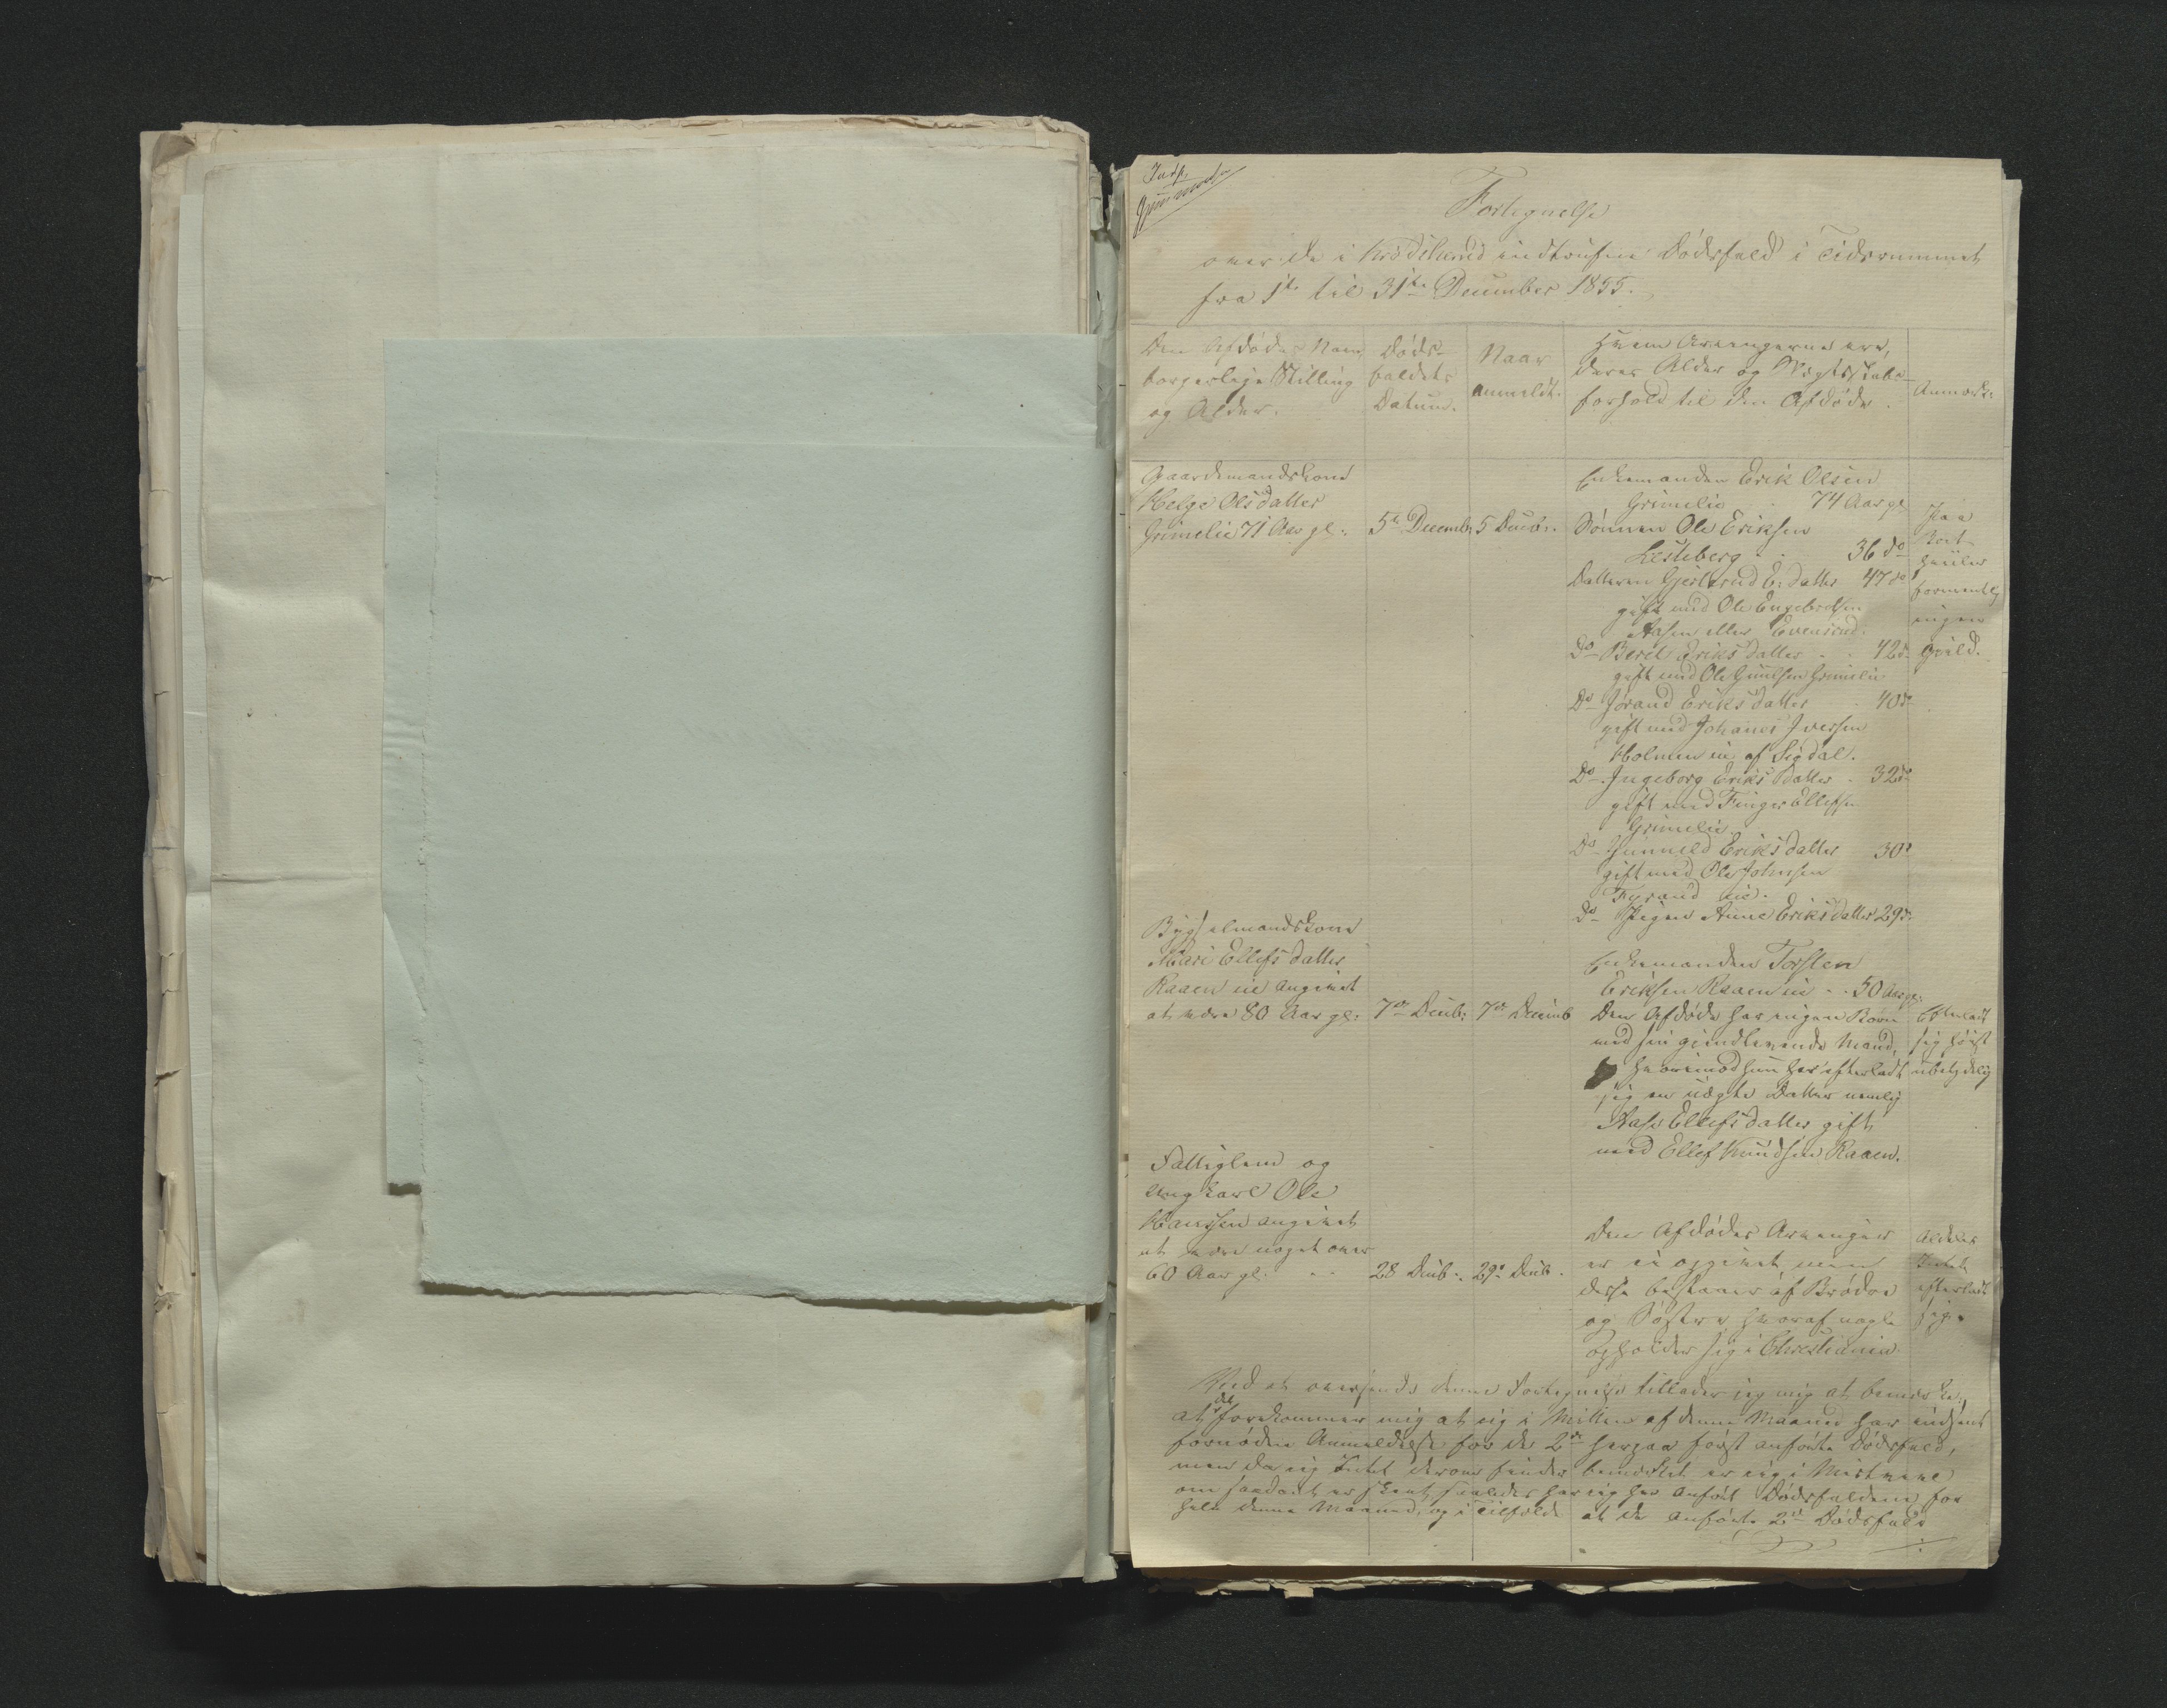 Fortegnelse
over de i Krødsherred indtrufne Dødsfald i Tidsrummet
fra 1te til 31te December 1855.
Den Afdødes Navn,
borgerlige Stilling
og Alder.
Døds-
faldets
Datum.
Naar
anmeldt.
Hvem Arvingerne ere,
deres Alder og Slægtskabs-
forhold til den Afdøde.
Anmærk:
Gaardmandskone
Helge Olsdatter
Grimelie 71 Aar gl:
5te Decemb:
5 Decb:
Enkemanden Erik Olsen
Grimelie 74 Aar gl
Sønnen Ole Eriksen
Lesteberg 36 do
Datteren Gjertrud E: datter 47 do
gift med Ole Engebretsen
Aasen eller Evensrud.
Do Berit Eriksdatter 42 do
gift med Ole Grimelie
Do Jørand Eriksdatter 40 do
gift med Johanes Iversen
Holmen af Sigdal.
Do Ingeborg Eriksdatter 32 do
gift med Finger Ellefsen
Grimelie
Do Gunnild Eriksdatter 30 do
gift med Ole Johnsen
Do Pigen Anne Eriksdatter 29 do
formentlig
ingen
Gjæld.
Bygselmandskone
Mari Ellefsdatter
Raaen angivet
at være 80 Aar gl:
7de Decb:
7de Decemb
Enkemanden Torsten
Eriksen Raaen 50 Aar gl:
Den Afdøde har ingen Børn
med sin gjenlevende Mand,
hvorimod hun har efterladt
sig en uægte Datter nemlig
Aase Ellefsdatter gift
med Ellef Knudsen Raaen.
Efterladt
sig høist
ubetydelig
Fattiglem og
Ungkarl Ole
Hanssen angivet
at være noget over
60 Aar gl:
28 Decb:
29de Decb.
Den Afdødes Arvinger
er ei opgivet, men
disse bestaaer af Brødre
og Søstre hvoraf nogle
opholder sig i Christiania
Aldeles
Intet
efterladt
sig.
Ved at oversende denne Fortegnelse tillader jeg mig at bemærke,
at det forekommer mig at jeg i Midten af denne Maaned har indsendt
fornøden Anmeldelse for de 2de herpaa først anførte Dødsfald,
men da jeg Intet derom finder bemærket er jeg i
om saadant er skeet, saaledes har jeg her anført Dødsfaldene for
hele denne Maaned, og i Tilfælde at de anførte 2de Dødsfald